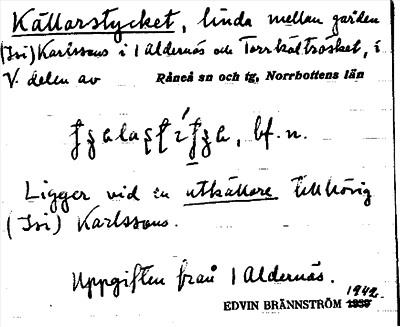 Källarstycket, linda mellan gården
(Isi) Karlssons i 1 Aldernäs och Torrkölträsket, i
V. delen av Råneå sn och tg, Norrbottens län
bf. n.
Ligger vid en utkällare tillhörig
(Isi) Karlssons.
Uppgiften från 1 Aldernäs.
1942.
EDVIN BRÄNNSTRÖM 1939